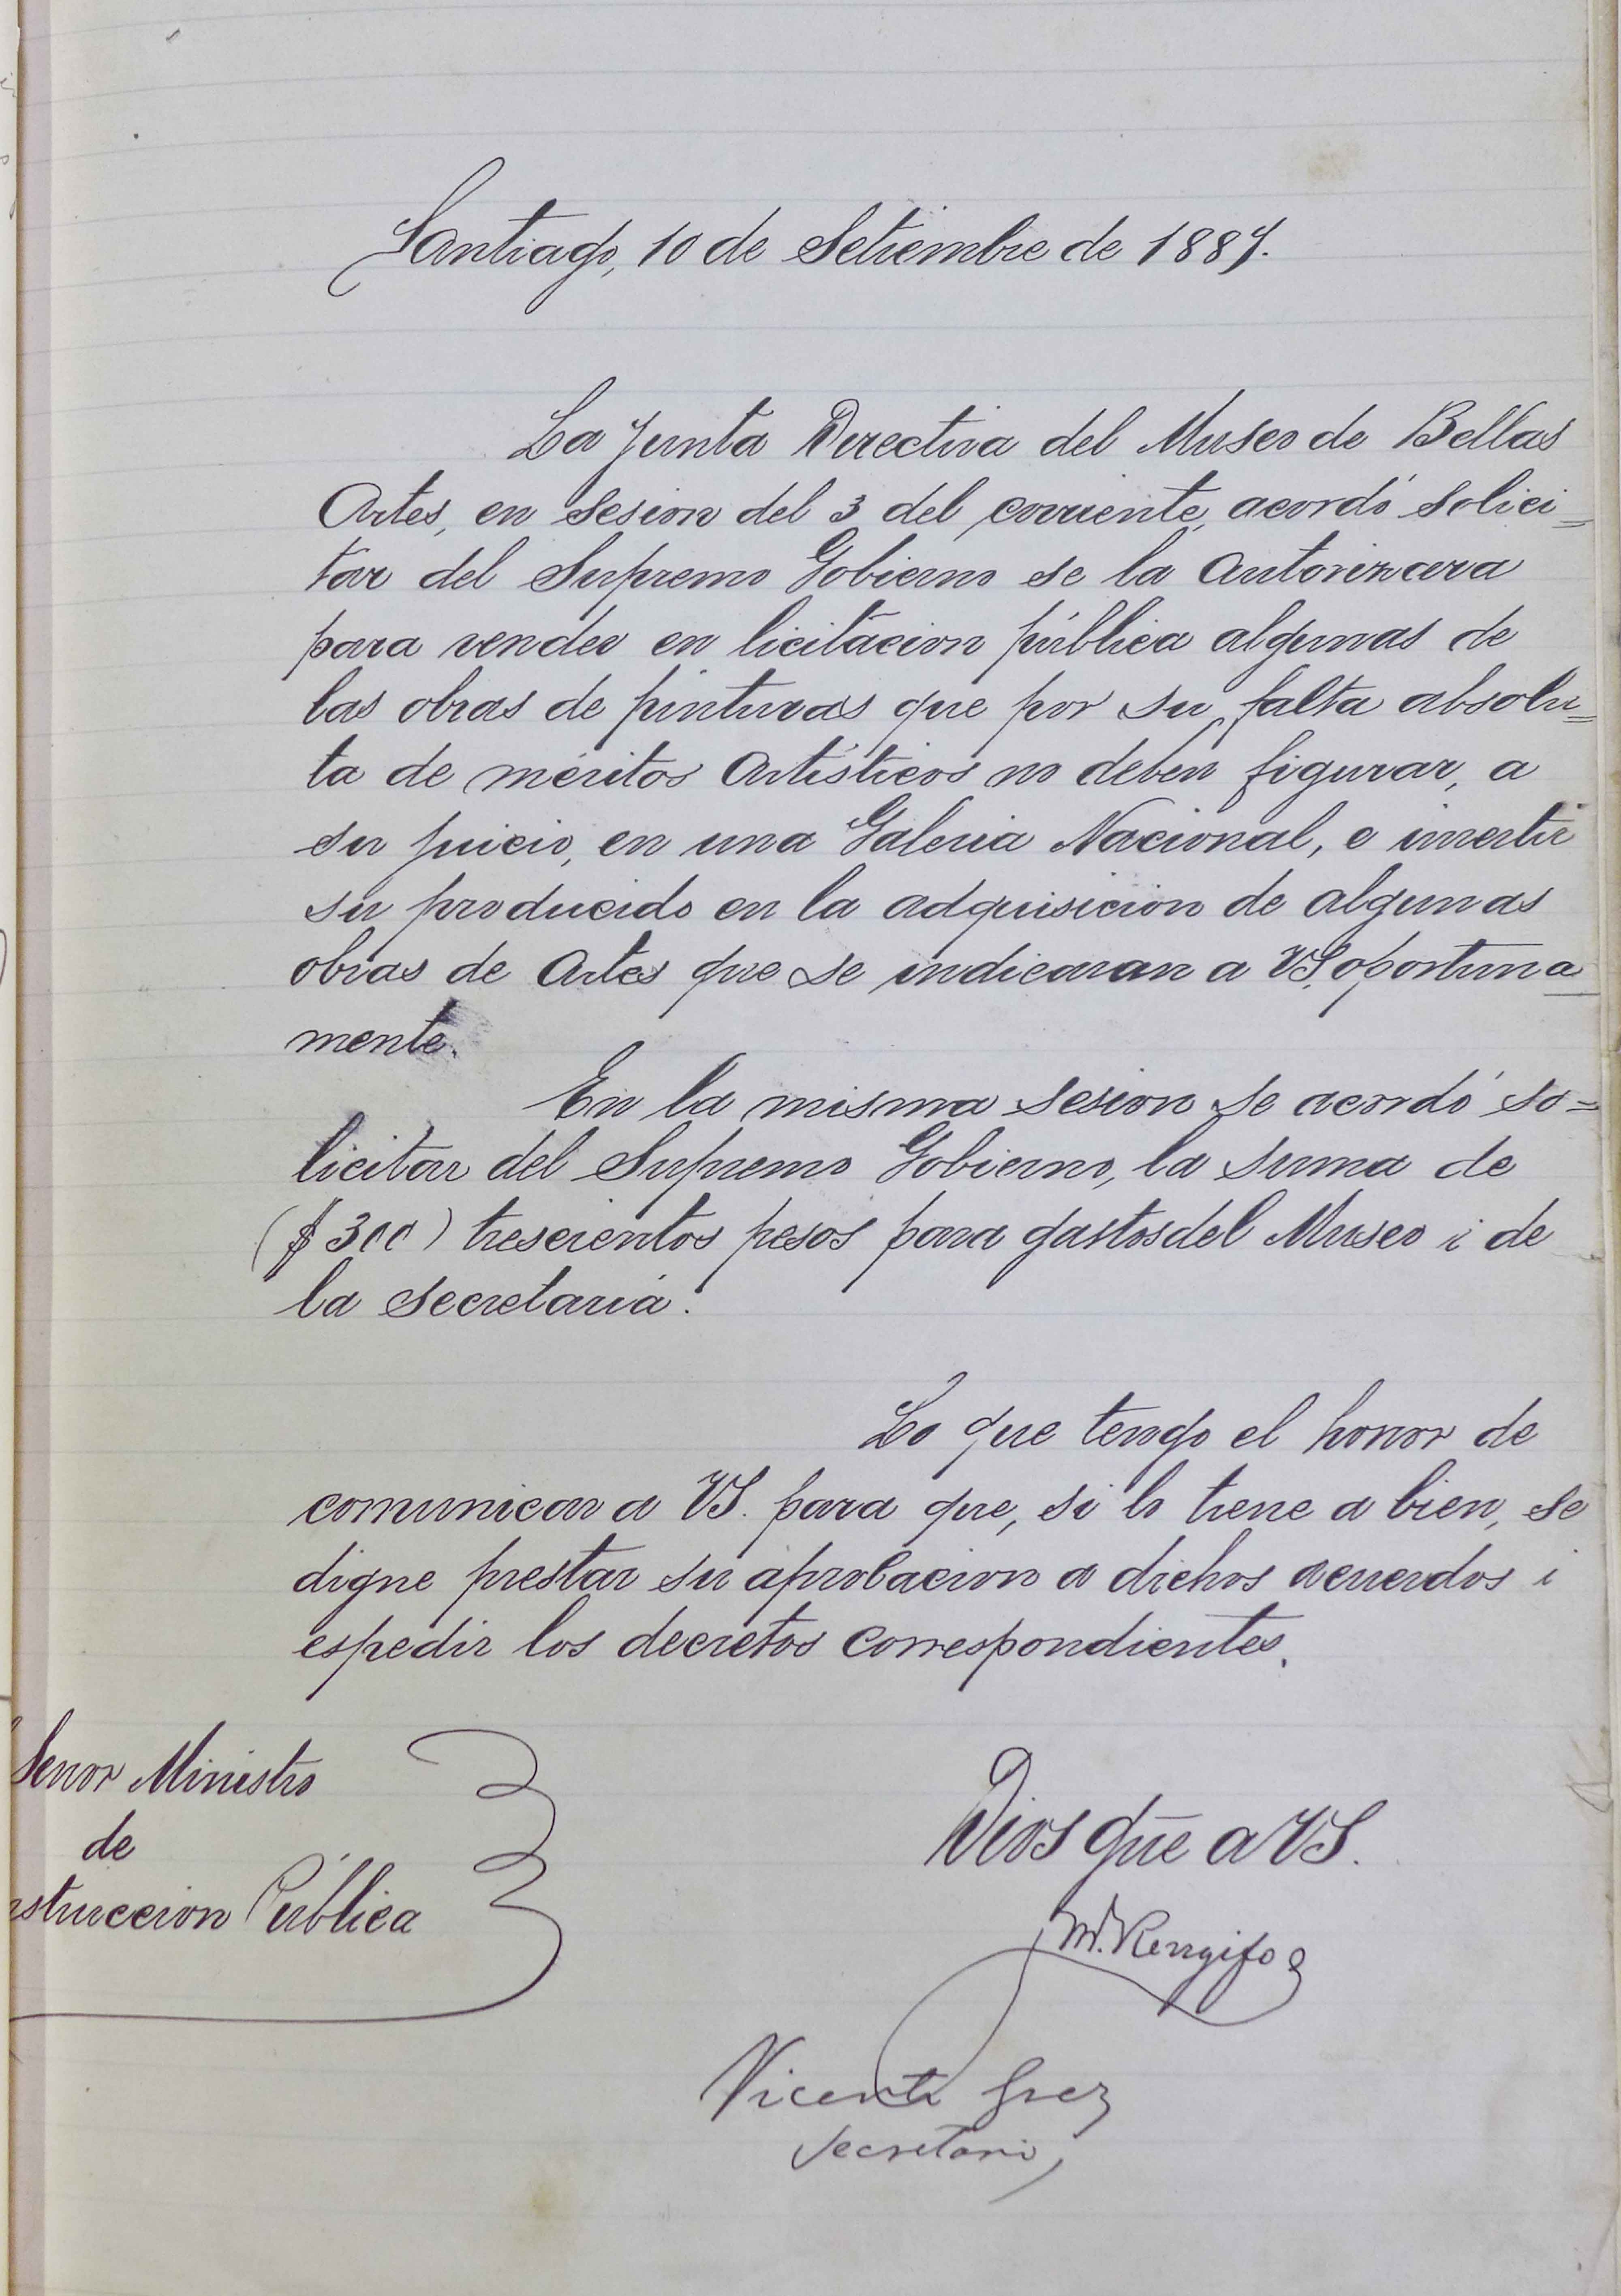 Santiago, 10 de Setiembre de 1887.
La Junta Directiva del Museo de Bellas
Artes, en sesion del 3 del corriente, acordó solici=
tar del Supremo Gobierno se la autorizara
para vender en licitacion pública algunas de
las obras de pinturas que por su falta absolu=
ta de méritos Artísticos no deben figurar, a
su juicio, en una Galeria Nacional, e invertir
su producido en la adquisicion de algunas
obras de Artes que se indicaran a VS. oportuna
mente.
En la misma sesion se acordó so=
licitar del Supremo Gobierno, la suma de
($ 300) trescientos pesos para gastos del Museo i de
la secretaría.
Lo que tengo el honor de
comunicar a VS. para que, si lo tiene a bien, se
digne prestar su aprobacion a dichos acuerdos i
espedir los decretos correspondientes.
Senor Ministro
de
nstruccion Pública
Dios gue a VS.
M. Rengifo
Vicente Grez
Secretario